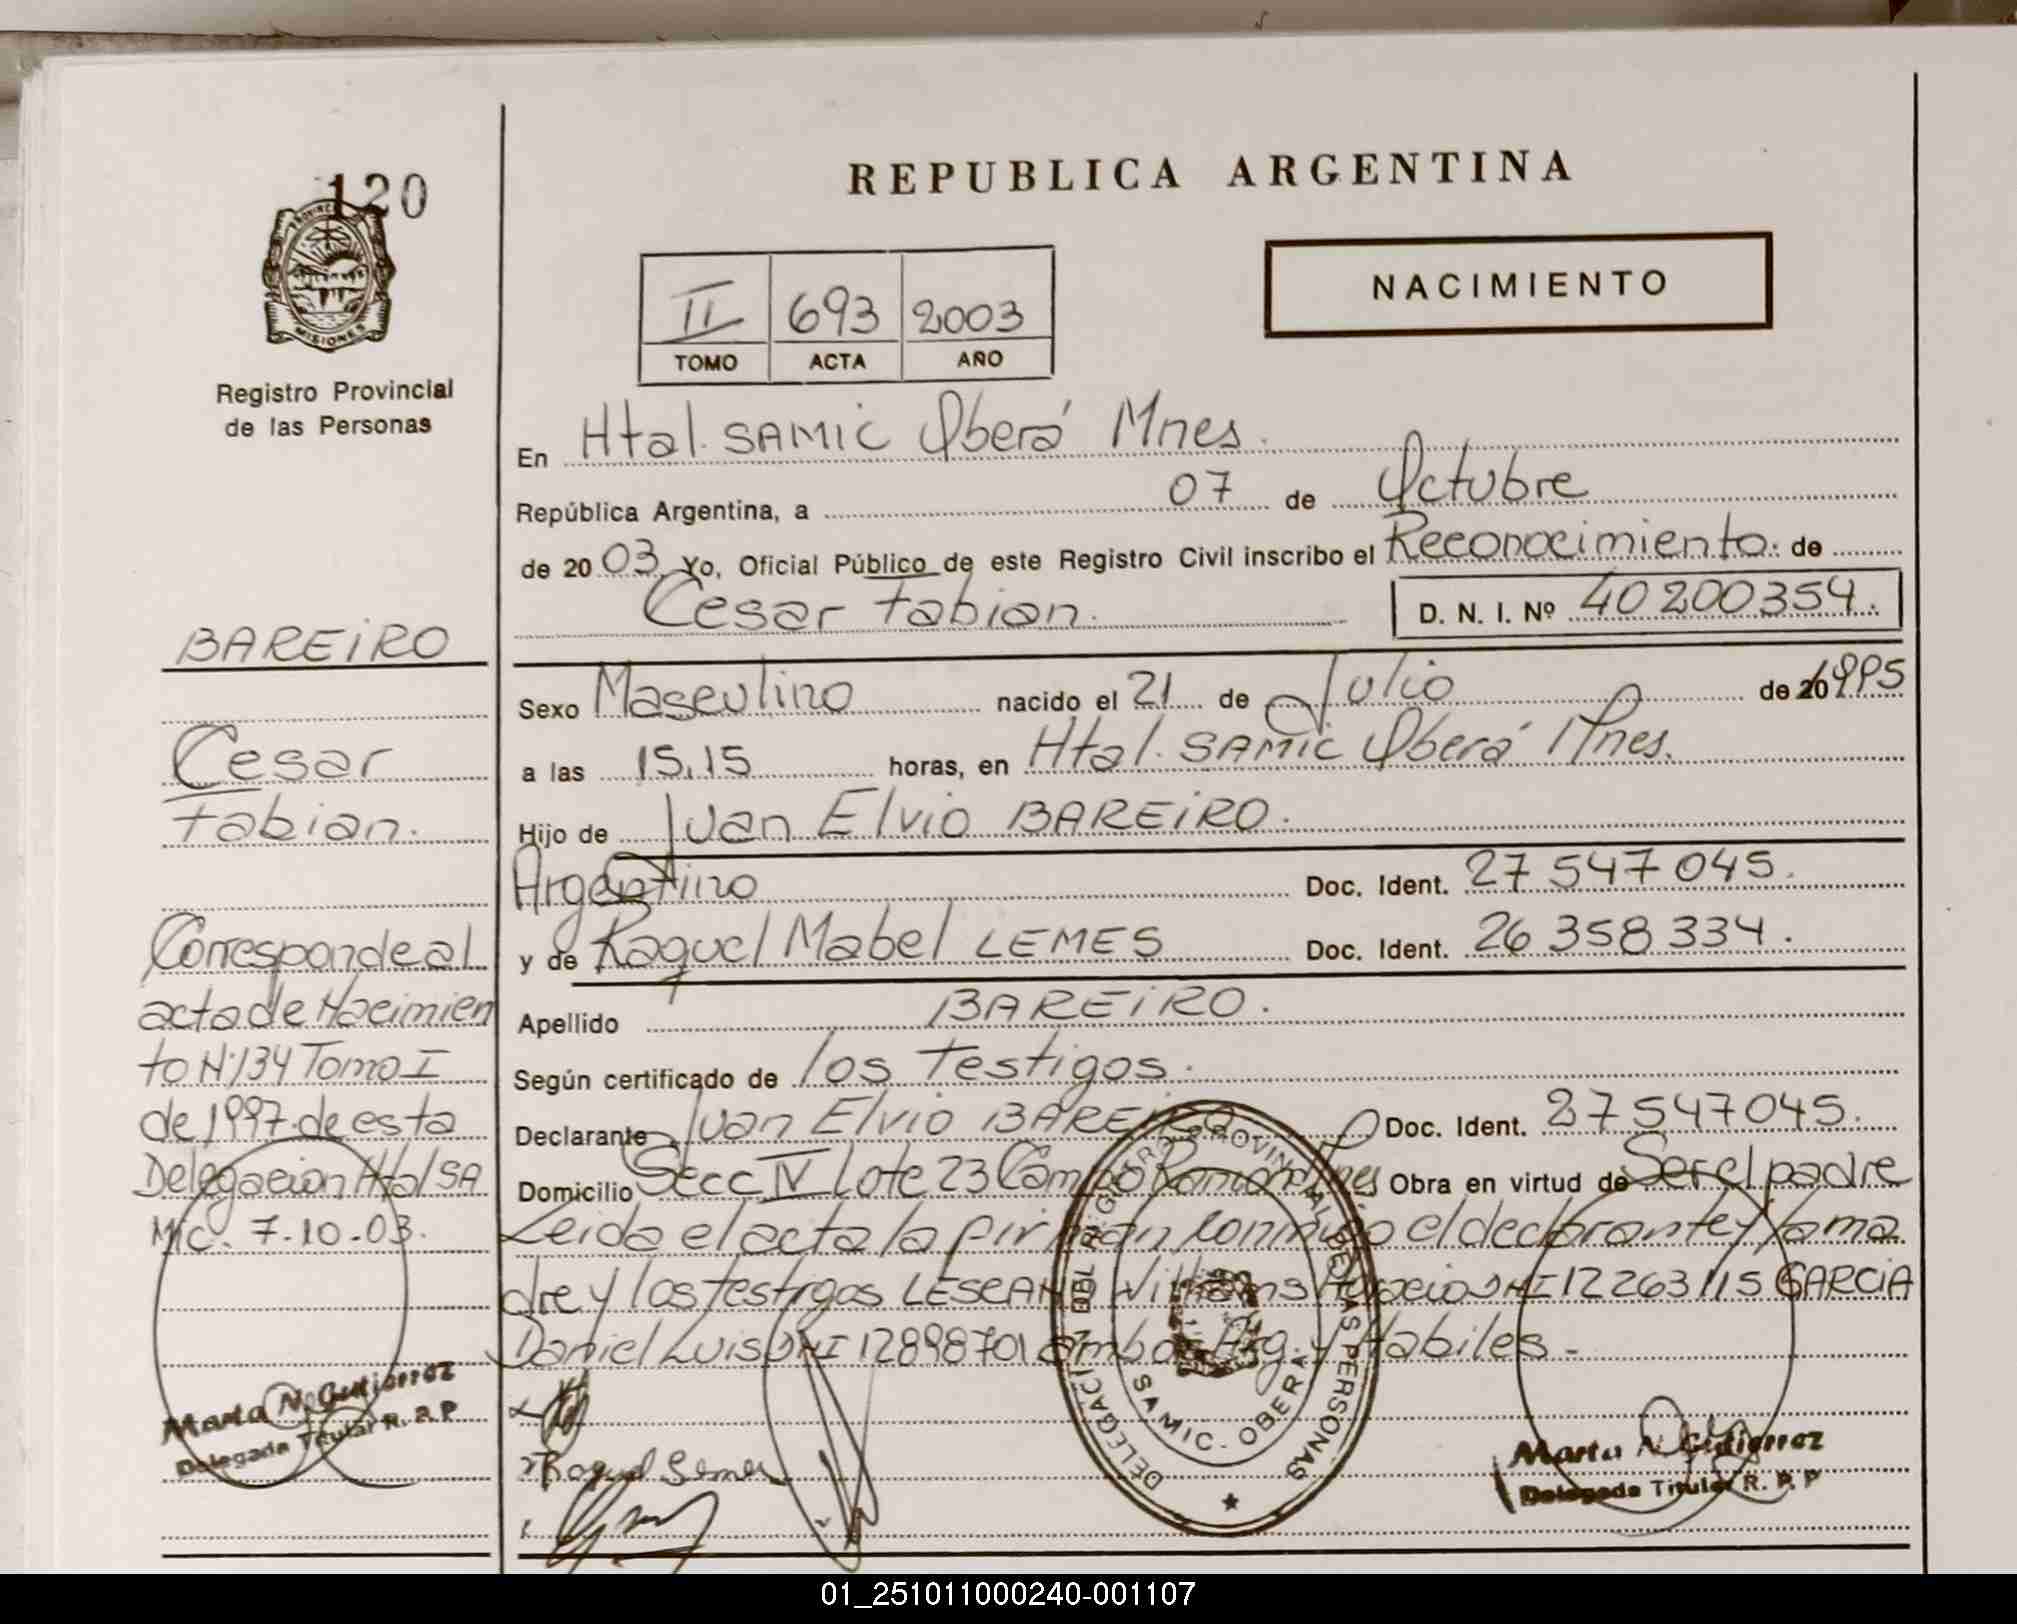 120
PROVINCIA
MISIONES
Registro Provincial
de las Personas
BAREIRO
Cesar
Fabian.
Corresponde al
acta de Nacimien
to Nº 134 Tomo I
de 1997 de esta
Delegacion Htal SA
MIC. 7.10.03.
Marta N. Gutierrez
Delegada Titular R. P. P
REPUBLICA ARGENTINA
II 693 2003
TOMO ACTA AÑO
NACIMIENTO
En Htal. SAMIC Oberá Mnes.
República Argentina, a 07 de Octubre
de 20 03 Yo, Oficial Público de este Registro Civil inscribo el Reconocimiento. de
Cesar Fabian. D. N. I. Nº 40200354.
Sexo Masculino nacido el 21 de Julio de 20 1995
a las 15.15 horas, en Htal. SAMIC Oberá Mnes.
Hijo de Juan Elvio BAREIRO.
Argentino Doc. Ident. 27 547 045.
y de Raquel Mabel LEMES Doc. Ident. 26 358 334.
Apellido BAREIRO.
Según certificado de los Testigos.
Declarante Juan Elvio BAREIRO Doc. Ident. 27547045.
Domicilio Secc IV Lote 23 Campo Ramon Mnes Obra en virtud de Ser el padre
Leida el acta la firman conmigo el declarante y la ma
dre y los testigos LESCANO Williams Horacio DNI 12263115 GARCIA
Daniel Luis DNI 12898701 ambos Arg. y Habiles.-
Raquel Lemes
DELEGACION DEL REGISTRO PROVINCIAL DE LAS PERSONAS
SAMIC. OBERA
Marta N. Gutierrez
Delegada Titular R. P. P
01_251011000240-001107